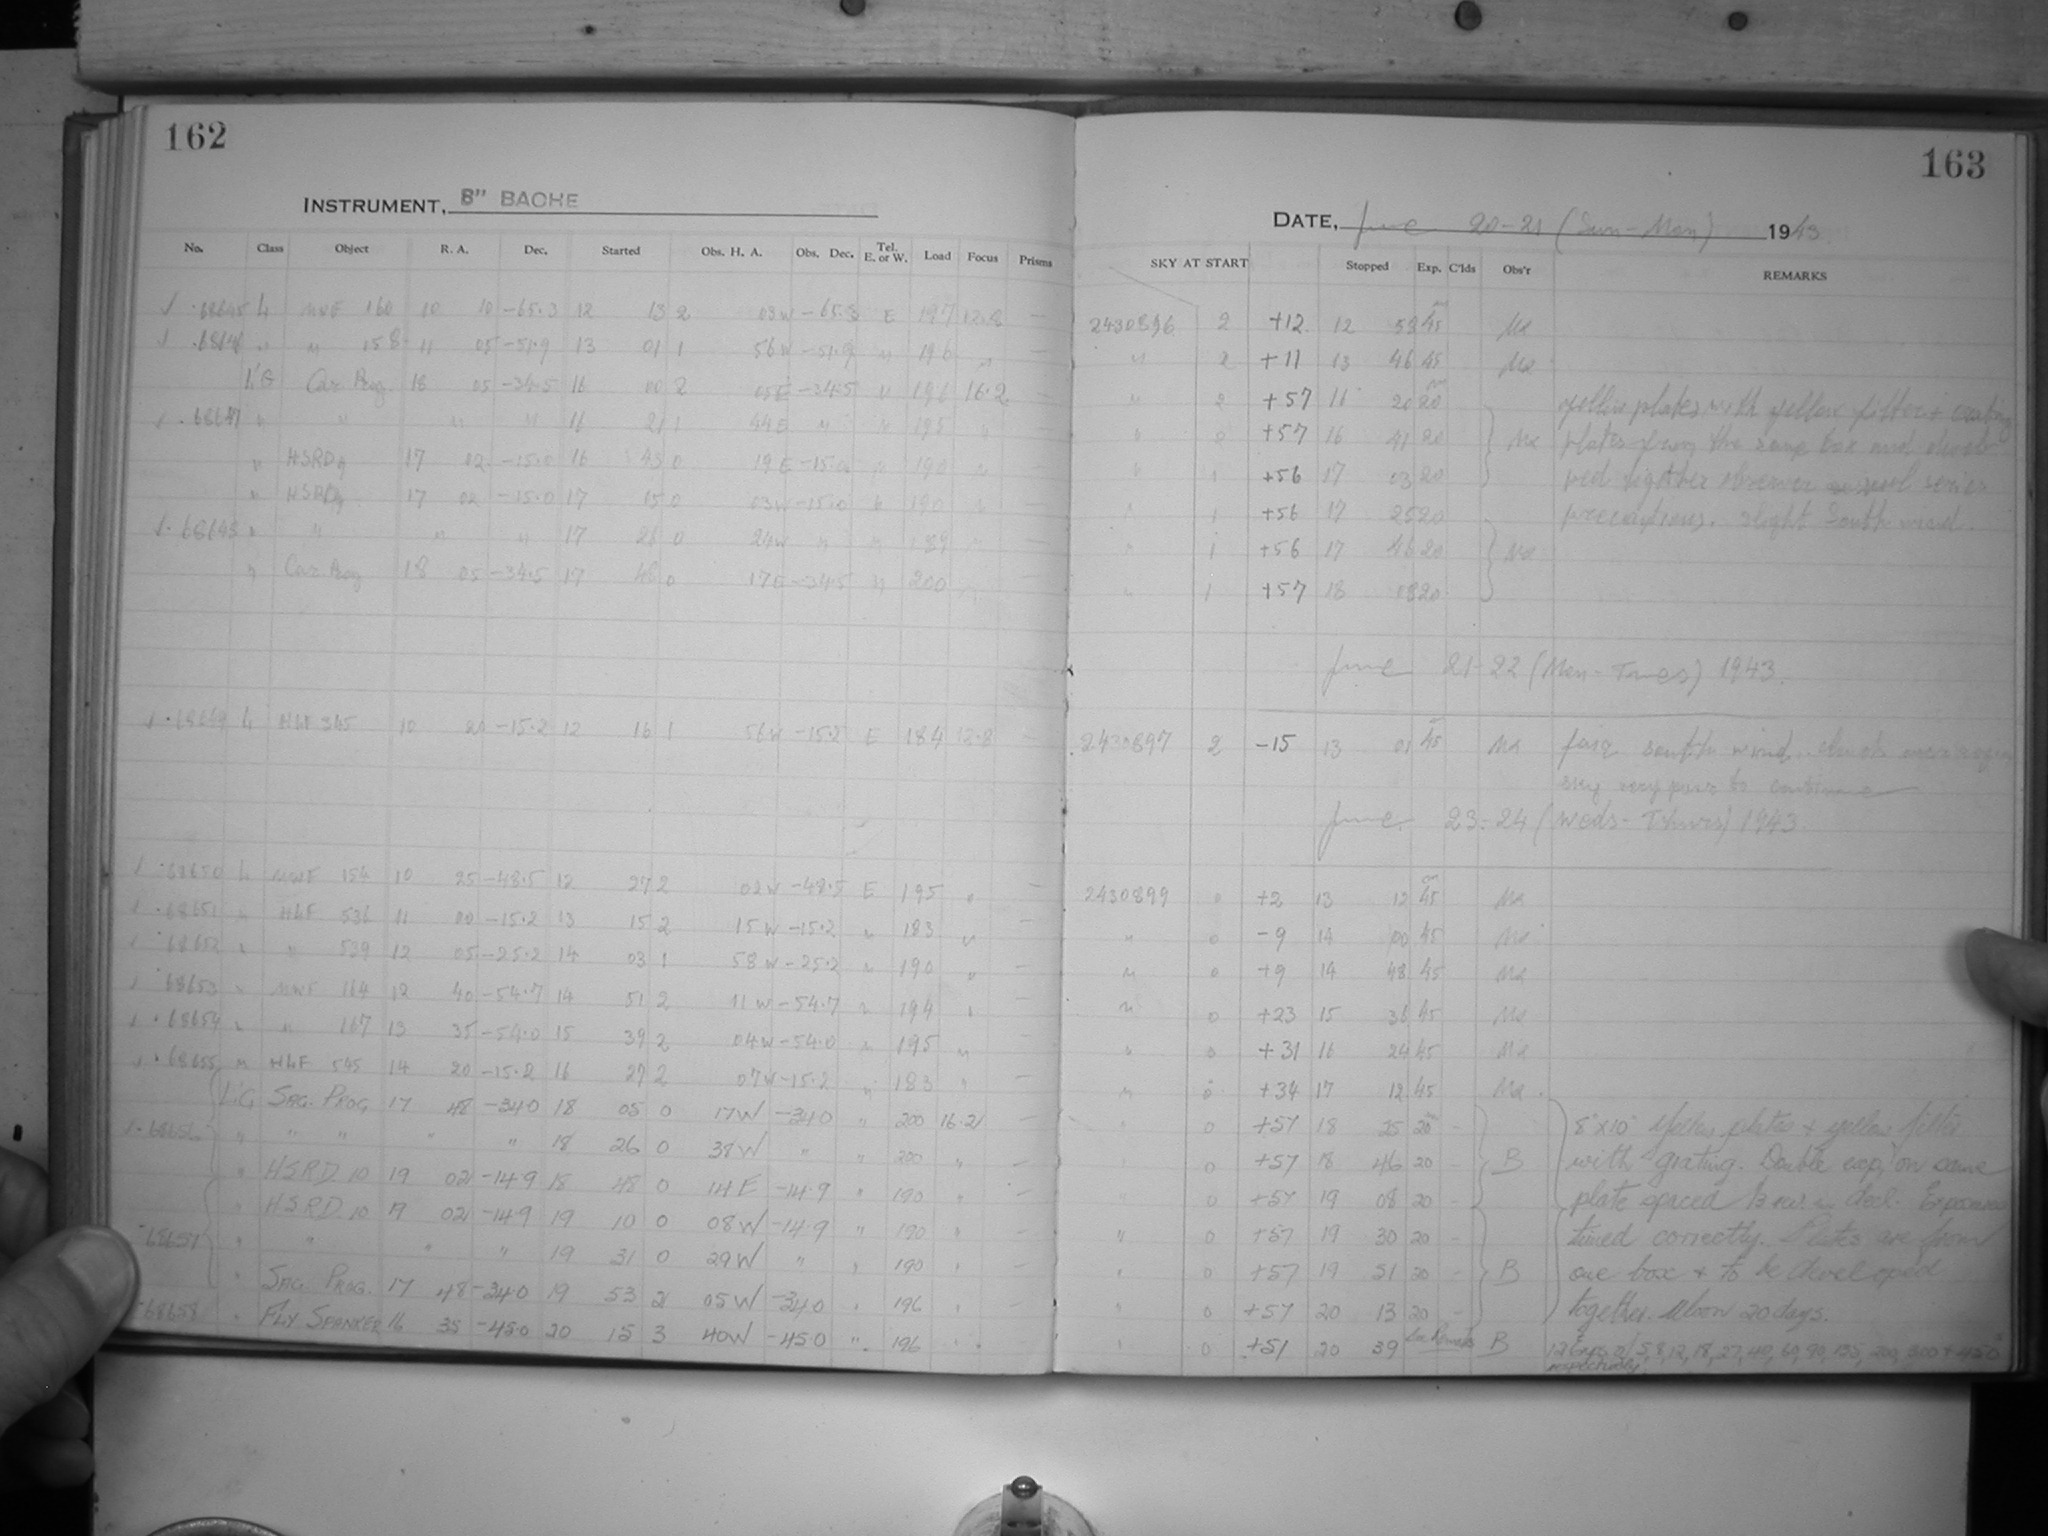 162
INSTRUMENT, 8" BACHE
No. Class Object R. A. Dec. Started Obs. H. A. Obs. Dec. Tel. E. or W. Load Focus Prisms
.68645 L MWF 160 10 10 -65.3 12 13 2 03W -65.3 E 197 12.8 —
" " 158 11 05 -51.9 13 01 1 56W -51.9 " 196 " —
L'G Car Prog. 18 05 -34.5 16 00 2 05E -34.5 " 196 16.2 —
.68647 " " " " 16 21 1 44E " " 195 " —
" HSRD 9 17 02 -15.0 16 43 0 19E -15.0 " 190 " —
" HSRD 9 17 02 -15.0 17 05 0 03W -15.0 " 190 " —
.68648 " " " " 17 26 0 24W " " 189 " —
" Car Prog 18 05 -34.5 17 48 0 17E -34.5 " 200 " —
.68649 L HLF 10 20 -15.2 12 16 1 56W -15.2 E 184 12.8 —
.68650 L MWF 154 10 25 -48.5 12 27 2 02W -48.5 E 195 " —
.68651 " HLF 536 11 00 -15.2 13 15 2 15W -15.2 " 183 " —
.68652 " " 539 12 05 -25.2 14 03 1 58W -25.2 " 190 " —
.68653 " MWF 164 12 40 -54.7 14 51 2 11W -54.7 " 194 " —
.68654 " " 167 13 35 -54.0 15 39 2 04W -54.0 " 195 " —
.68655 " HLF 545 14 20 -15.2 16 27 2 07W -15.2 " 183 " —
L'G SAG. PROG. 17 48 -34.0 18 05 0 17W -34.0 " 200 16.21 —
.68656 " " " " " 18 26 0 38W " " 200 "
" HSRD 10 19 02 -14.9 18 48 0 14E -14.9 " 190 " —
" HSRD 10 19 02 -14.9 19 10 0 08W -14.9 " 190 " —
.68657 " " " " 19 31 0 29W " " 190 "
" SAG. PROG. 17 48 -34.0 19 53 2 05W -34.0 " 196 "
.68658 " FLY SPANKER 16 35 -45.0 20 15 3 40W -45.0 " 196 "
163
DATE, June 20-21 (Sun-Mon) 1943
SKY AT START Stopped Exp. C'lds Obs'r REMARKS
2430896 2 +12 12 58 45 Mx
" 2 +11 13 46 45 Mx
" 2 +57 16 20 20 yellow plates with yellow filter + grating
" 0 +57 16 41 20 Mx plates from the same box and
" 1 +56 17 03 20 together
" 1 +56 17 25 20 precautions. slight South wind.
" 1 +56 17 46 20 Mx
" 1 +57 18 08 20
June 21-22 (Mon-Tues) 1943.
2430897 2 -15 13 01 45 Mx south wind. clouds
sky very poor to continue
June 23-24 (Weds-Thurs) 1943
2430899 0 +2 13 12 45 Mx
" 0 -9 14 00 45 Mx
" 0 +9 14 48 45 Mx
" 0 +23 15 36 45 Mx
" 0 +31 16 24 45 Mx
" 0 +34 17 12 45 Mx
" 0 +57 18 25 20 - 8"x10" Yellow plates + yellow filter
" 0 +57 18 46 20 - B with grating. Double exp. on same
" 0 +57 19 08 20 - plate spaced in decl. Exposures
" 0 +57 19 30 20 - timed correctly. Plates are from
" 0 +57 19 51 20 - B one box & to be developed
" 0 +57 20 13 20 - together. Moon 20 days.
" 0 +51 20 39 See Remarks B 12 Exps. of 5, 8, 12, 18, 27, 40, 60, 90, 135, 200, 300 + 450
respectively.